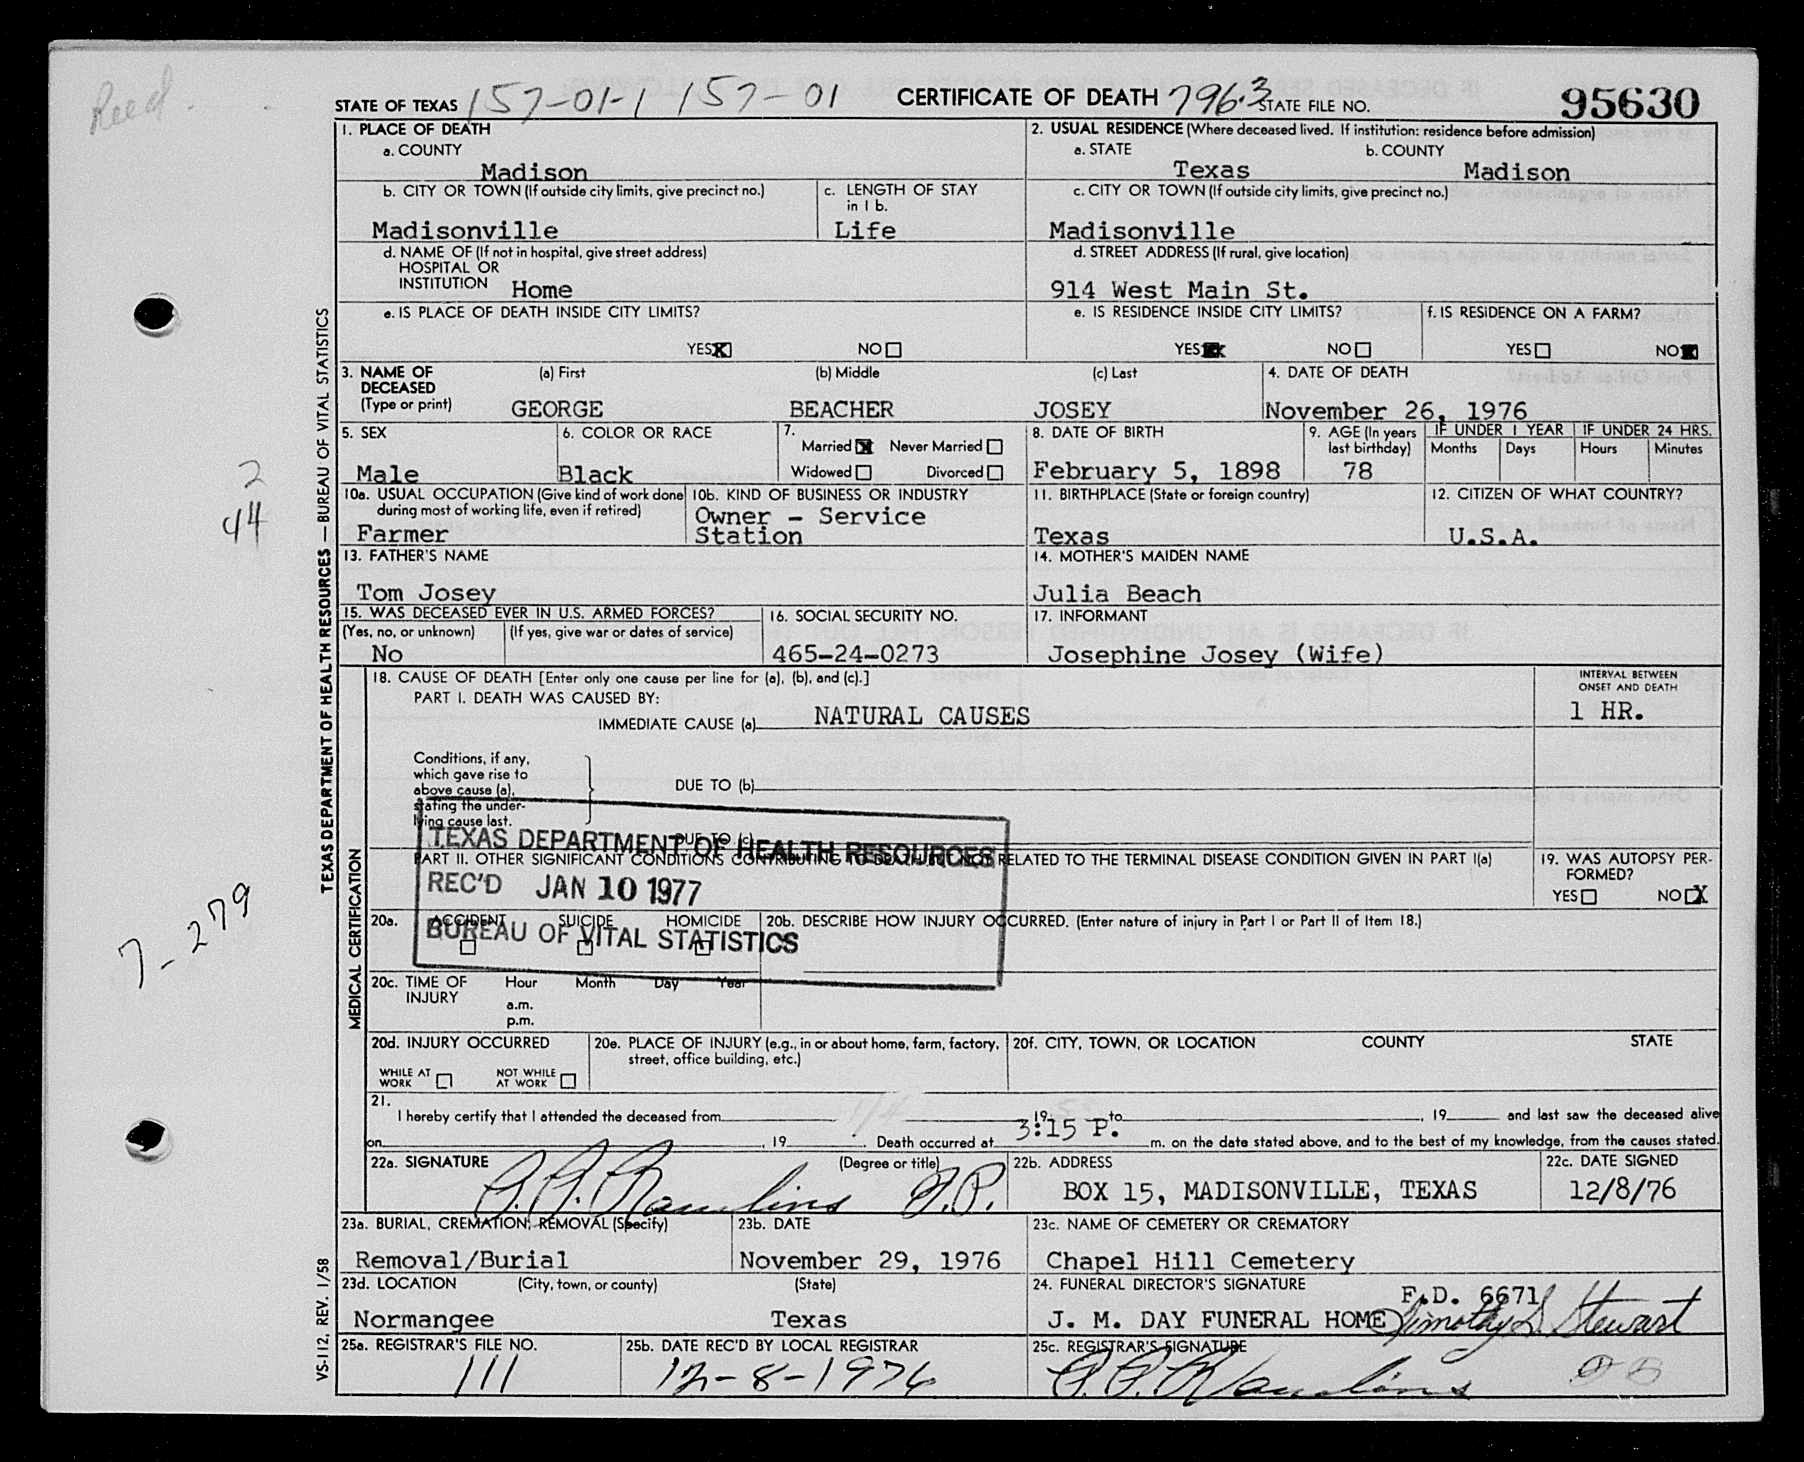 Reed
STATE OF TEXAS 157-01-1 157-01 CERTIFICATE OF DEATH 7963 STATE FILE NO. 95630
1. PLACE OF DEATH
a. COUNTY
Madison
2. USUAL RESIDENCE (Where deceased lived. If institution: residence before admission)
a. STATE b. COUNTY
Texas Madison
b. CITY OR TOWN (If outside city limits, give precinct no.)
Madisonville
c. LENGTH OF STAY
in 1 b.
Life
c. CITY OR TOWN (If outside city limits, give precinct no.)
Madisonville
d. NAME OF (If not in hospital, give street address)
HOSPITAL OR
INSTITUTION Home
d. STREET ADDRESS (If rural, give location)
914 West Main St.
e. IS PLACE OF DEATH INSIDE CITY LIMITS?
YES X NO
e. IS RESIDENCE INSIDE CITY LIMITS?
YES X NO
f. IS RESIDENCE ON A FARM?
YES NO X
3. NAME OF
DECEASED
(Type or print)
(a) First (b) Middle (c) Last
GEORGE BEACHER JOSEY
4. DATE OF DEATH
November 26, 1976
5. SEX
Male
6. COLOR OR RACE
Black
7.
Married X Never Married
Widowed Divorced
8. DATE OF BIRTH
February 5, 1898
9. AGE (In years
last birthday)
78
IF UNDER 1 YEAR
Months Days
IF UNDER 24 HRS.
Hours Minutes
10a. USUAL OCCUPATION (Give kind of work done
during most of working life, even if retired)
Farmer
10b. KIND OF BUSINESS OR INDUSTRY
Owner - Service
Station
11. BIRTHPLACE (State or foreign country)
Texas
12. CITIZEN OF WHAT COUNTRY?
U.S.A.
13. FATHER'S NAME
Tom Josey
14. MOTHER'S MAIDEN NAME
Julia Beach
15. WAS DECEASED EVER IN U.S. ARMED FORCES?
(Yes, no, or unknown) (If yes, give war or dates of service)
No
16. SOCIAL SECURITY NO.
465-24-0273
17. INFORMANT
Josephine Josey (Wife)
18. CAUSE OF DEATH [Enter only one cause per line for (a), (b), and (c).]
PART I. DEATH WAS CAUSED BY:
IMMEDIATE CAUSE (a) NATURAL CAUSES
INTERVAL BETWEEN
ONSET AND DEATH
1 HR.
Conditions, if any,
which gave rise to
above cause (a),
stating the under-
lying cause last.
DUE TO (b)
DUE TO (c)
TEXAS DEPARTMENT OF HEALTH RESOURCES
REC'D JAN 10 1977
BUREAU OF VITAL STATISTICS
PART II. OTHER SIGNIFICANT CONDITIONS CONTRIBUTING TO DEATH BUT NOT RELATED TO THE TERMINAL DISEASE CONDITION GIVEN IN PART I(a)
19. WAS AUTOPSY PER-
FORMED?
YES NO X
20a. ACCIDENT SUICIDE HOMICIDE
20b. DESCRIBE HOW INJURY OCCURRED. (Enter nature of injury in Part I or Part II of Item 18.)
20c. TIME OF
INJURY
Hour Month Day Year
a.m.
p.m.
20d. INJURY OCCURRED
WHILE AT
WORK
NOT WHILE
AT WORK
20e. PLACE OF INJURY (e.g., in or about home, farm, factory,
street, office building, etc.)
20f. CITY, TOWN, OR LOCATION COUNTY STATE
21.
I hereby certify that I attended the deceased from 19 to , 19 and last saw the deceased alive
on , 19 . Death occurred at 3:15 P. m. on the date stated above, and to the best of my knowledge, from the causes stated.
22a. SIGNATURE (Degree or title)
Rawlins J.P.
22b. ADDRESS
BOX 15, MADISONVILLE, TEXAS
22c. DATE SIGNED
12/8/76
23a. BURIAL, CREMATION, REMOVAL (Specify)
Removal/Burial
23b. DATE
November 29, 1976
23c. NAME OF CEMETERY OR CREMATORY
Chapel Hill Cemetery
23d. LOCATION (City, town, or county) (State)
Normangee Texas
24. FUNERAL DIRECTOR'S SIGNATURE
F.D. 6671
J. M. DAY FUNERAL HOME Timothy S. Stewart
25a. REGISTRAR'S FILE NO.
111
25b. DATE REC'D BY LOCAL REGISTRAR
12-8-1976
25c. REGISTRAR'S SIGNATURE
Rawlins
TEXAS DEPARTMENT OF HEALTH RESOURCES — BUREAU OF VITAL STATISTICS
MEDICAL CERTIFICATION
VS-112, REV. 1/58
2
44
7-279